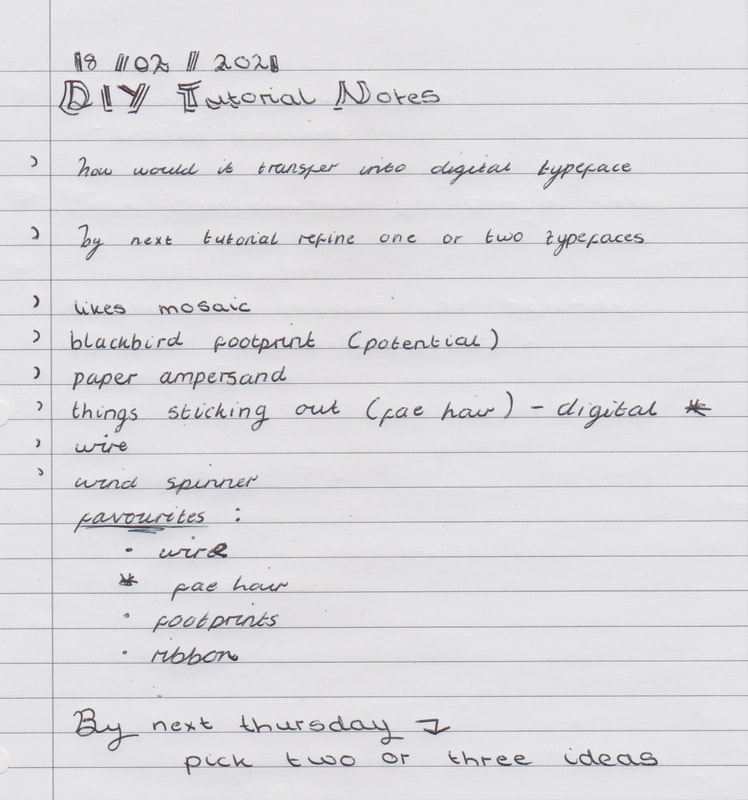 18 // 02 // 2021
DIY Tutorial Notes
how would it transfer into digital typeface
By next tutorial refine one or two typefaces
likes mosaic
blackbird footprint (potential)
paper ampersand
things sticking out (fae hair) - digital *
wire
wind spinner
favourites :
· wire
* fae hair
· footprints
· ribbon
By next thursday ↴
pick two or three ideas